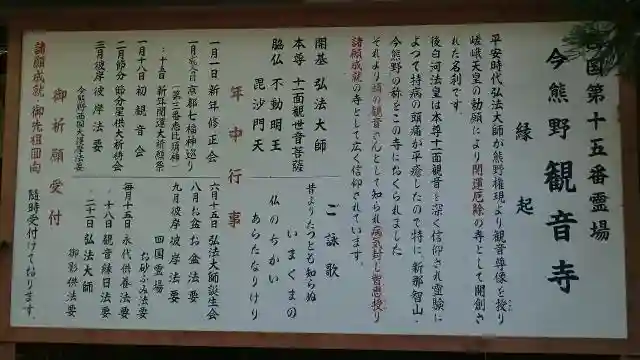 西国第十五番霊場
今熊野観音寺
縁起
平安時代弘法大師が熊野権現より観音尊像を授り
嵯峨天皇の勅願により開運厄除の寺として開創さ
れた名刹です。
後白河法皇は本尊十一面観音を深く信仰され霊験に
よつて持病の頭痛が平癒したので特に、新那智山・
今熊野の称をこの寺におくられました
それより頭の観音さんとして知られ病気封じ智恵授り
諸願成就の寺として広く信仰されています。
開基 弘法大師
本尊 十一面観世音菩薩
脇仏 不動明王
毘沙門天
ご詠歌
昔よりたつとも知らぬ
いまくまの
仏のちかい
あらたなりけり
年中行事
一月一日 新年修正会
一月成人の日 京都七福神巡り
(第三番恵比須神)
〃十五日 新年開運大祈願祭
一月十八日 初観音会
二月節分 節分星供大祈祷会
三月彼岸 彼岸法要
今熊野西国大護摩法要
六月十五日 弘法大師誕生会
八月お盆 お盆法要
九月彼岸 彼岸法要
四国霊場
お砂ふみ法要
毎月十五日 永代供養法要
〃十八日 観音縁日法要
〃二十一日 弘法大師
御影供法要
御祈願受付
諸願成就・御先祖回向 随時受付けております。